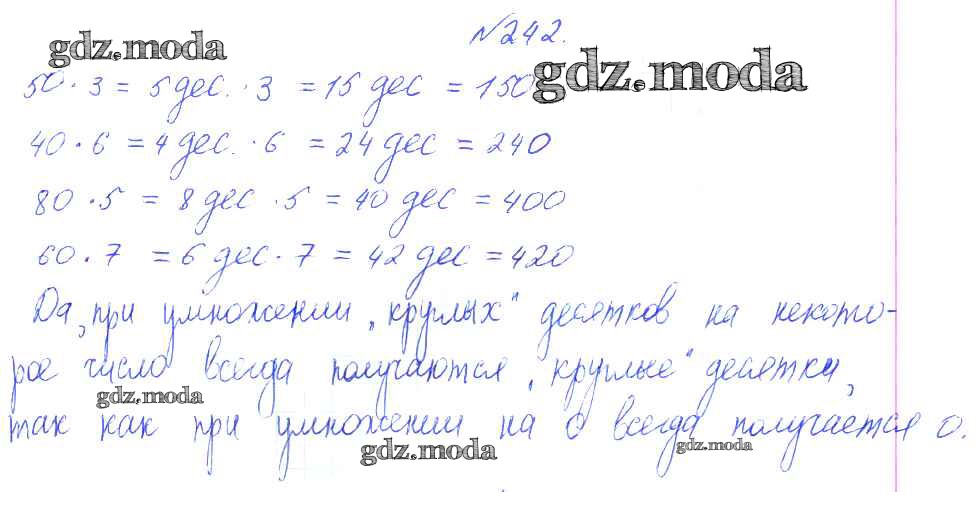 №242.
gdz.moda
50 · 3 = 5 дес. · 3 = 15 дес = 150
gdz.moda
40 · 6 = 4 дес. · 6 = 24 дес = 240
80 · 5 = 8 дес · 5 = 40 дес = 400
60 · 7 = 6 дес · 7 = 42 дес = 420
Да, при умножении „круглых" десятков на некото-
рое число всегда получаются „круглые" десятки,
gdz.moda
так как при умножении на 0 всегда получается 0.
gdz.moda
gdz.moda